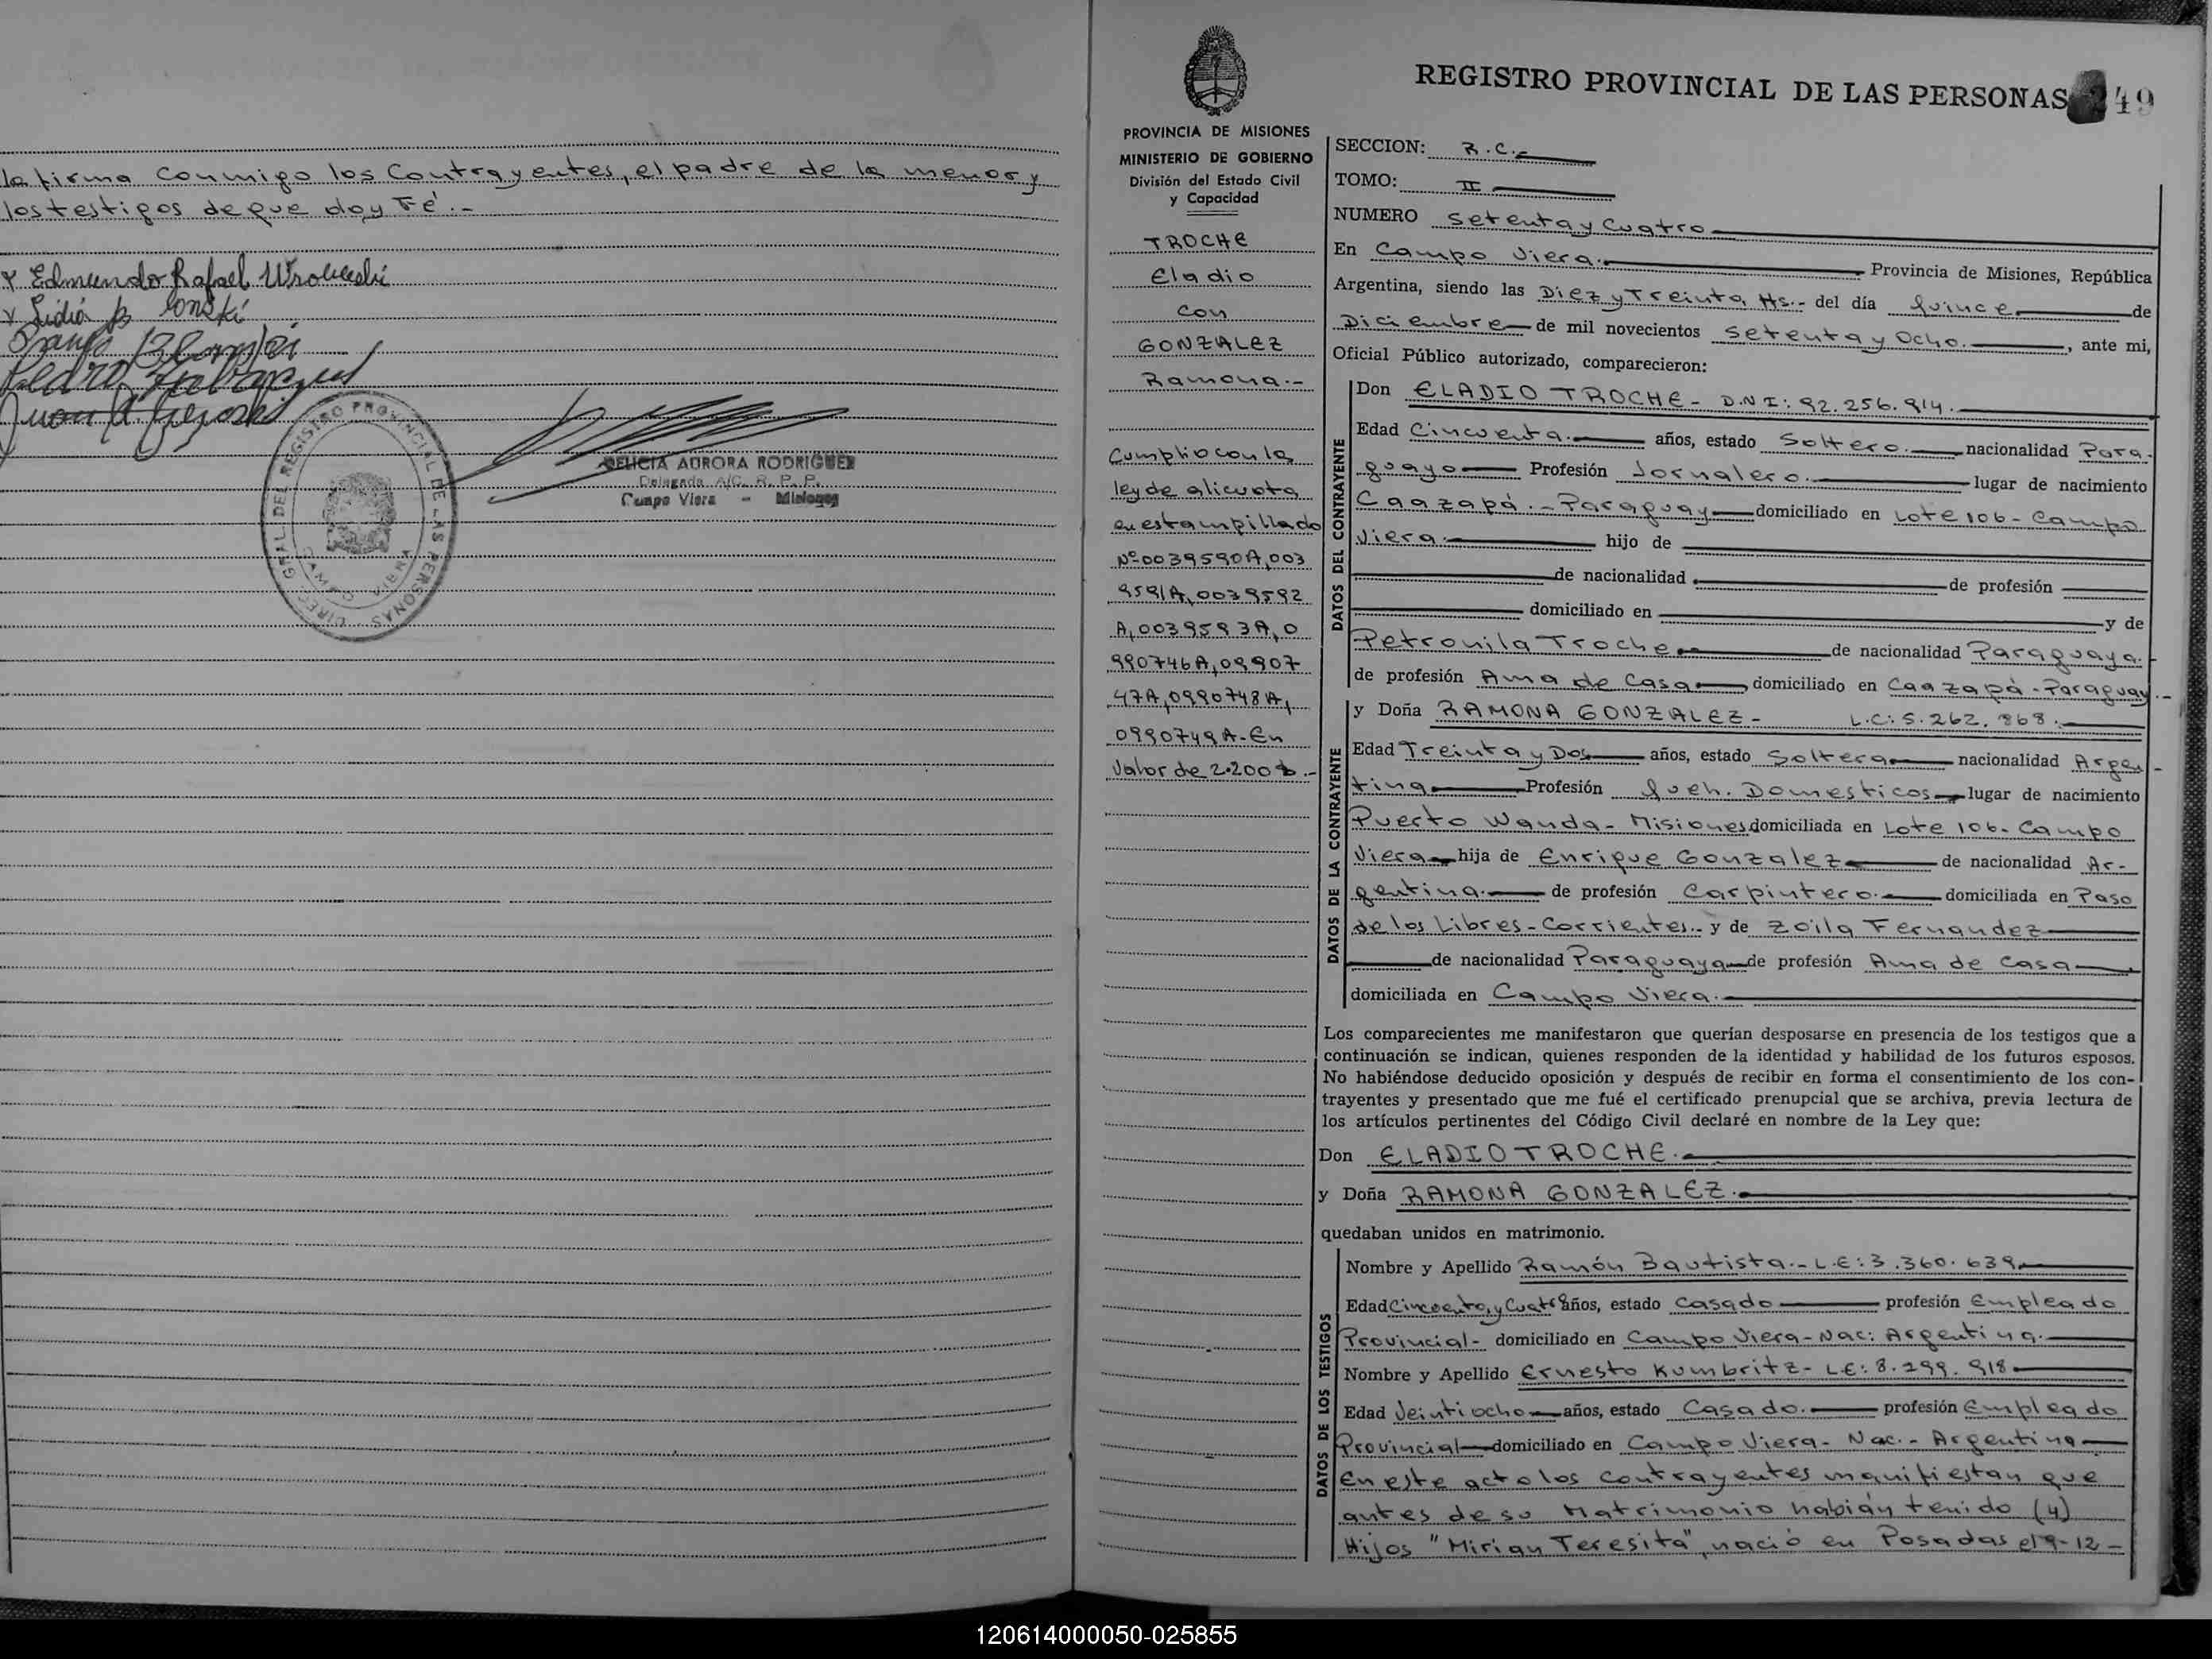 la firma conmigo los Contrayentes, el padre de la menor y
los testigos de que doy Fé.-
x Edmundo Rafael
x Lidia
Pedro
Juan
DIREC. GRAL. DEL REGISTRO PROVINCIAL DE LAS PERSONAS
CAMPO VIERA
DELICIA AURORA RODRIGUEZ
Delegada A/C. R. P. P.
Campo Viera - Misiones
REGISTRO PROVINCIAL DE LAS PERSONAS 49
PROVINCIA DE MISIONES
MINISTERIO DE GOBIERNO
División del Estado Civil
y Capacidad
TROCHE
Eladio
Con
GONZALEZ
Ramona.-
Cumplio con la
ley de alicuota
en estampillado
Nº 0039590A, 003
9591A, 0039592
A, 0039593A, 0
990746A, 09907
47A, 0990748A,
0990749A- En
Valor de 2.200$.-
SECCION: R.C.-
TOMO: II
NUMERO Setenta y Cuatro
En Campo Viera. Provincia de Misiones, República
Argentina, siendo las Diez y Treinta Hs.- del día Quince de
Diciembre de mil novecientos Setenta y Ocho. , ante mi,
Oficial Público autorizado, comparecieron:
DATOS DEL CONTRAYENTE
Don ELADIO TROCHE - D.N.I: 92.256.914.
Edad Cincuenta. años, estado Soltero. nacionalidad Para-
guayo Profesión Jornalero. lugar de nacimiento
Caazapá.- Paraguay domiciliado en Lote 106- Campo
Viera. hijo de
de nacionalidad de profesión
domiciliado en y de
Petronila Troche. de nacionalidad Paraguaya.-
de profesión Ama de Casa , domiciliado en Caazapá- Paraguay.-
DATOS DE LA CONTRAYENTE
y Doña RAMONA GONZALEZ- L.C: 5.262.868.
Edad Treinta y Dos años, estado Soltera nacionalidad Argen-
tina Profesión Queh. Domesticos lugar de nacimiento
Puerto Wanda- Misiones domiciliada en Lote 106- Campo
Viera hija de Enrique Gonzalez de nacionalidad Ar-
gentina. de profesión Carpintero. domiciliada en Paso
de los Libres- Corrientes.- y de Zoila Fernandez
de nacionalidad Paraguaya de profesión Ama de Casa
domiciliada en Campo Viera.
Los comparecientes me manifestaron que querían desposarse en presencia de los testigos que a
continuación se indican, quienes responden de la identidad y habilidad de los futuros esposos.
No habiéndose deducido oposición y después de recibir en forma el consentimiento de los con-
trayentes y presentado que me fué el certificado prenupcial que se archiva, previa lectura de
los artículos pertinentes del Código Civil declaré en nombre de la Ley que:
Don ELADIO TROCHE.
y Doña RAMONA GONZALEZ.
quedaban unidos en matrimonio.
DATOS DE LOS TESTIGOS
Nombre y Apellido Ramón Bautista.- L.E: 3.360.639
Edad Cincuenta y Cuatro años, estado Casado profesión Empleado
Provincial- domiciliado en Campo Viera- Nac: Argentina.
Nombre y Apellido Ernesto Kumbritz- L.E: 8.299.918
Edad Veintiocho años, estado Casado. profesión Empleado
Provincial domiciliado en Campo Viera- Nac.- Argentina
En este acto los contrayentes manifiestan que
antes de su Matrimonio habián tenido (4)
Hijos "Mirian Teresita", nació en Posadas el 9-12-
120614000050-025855